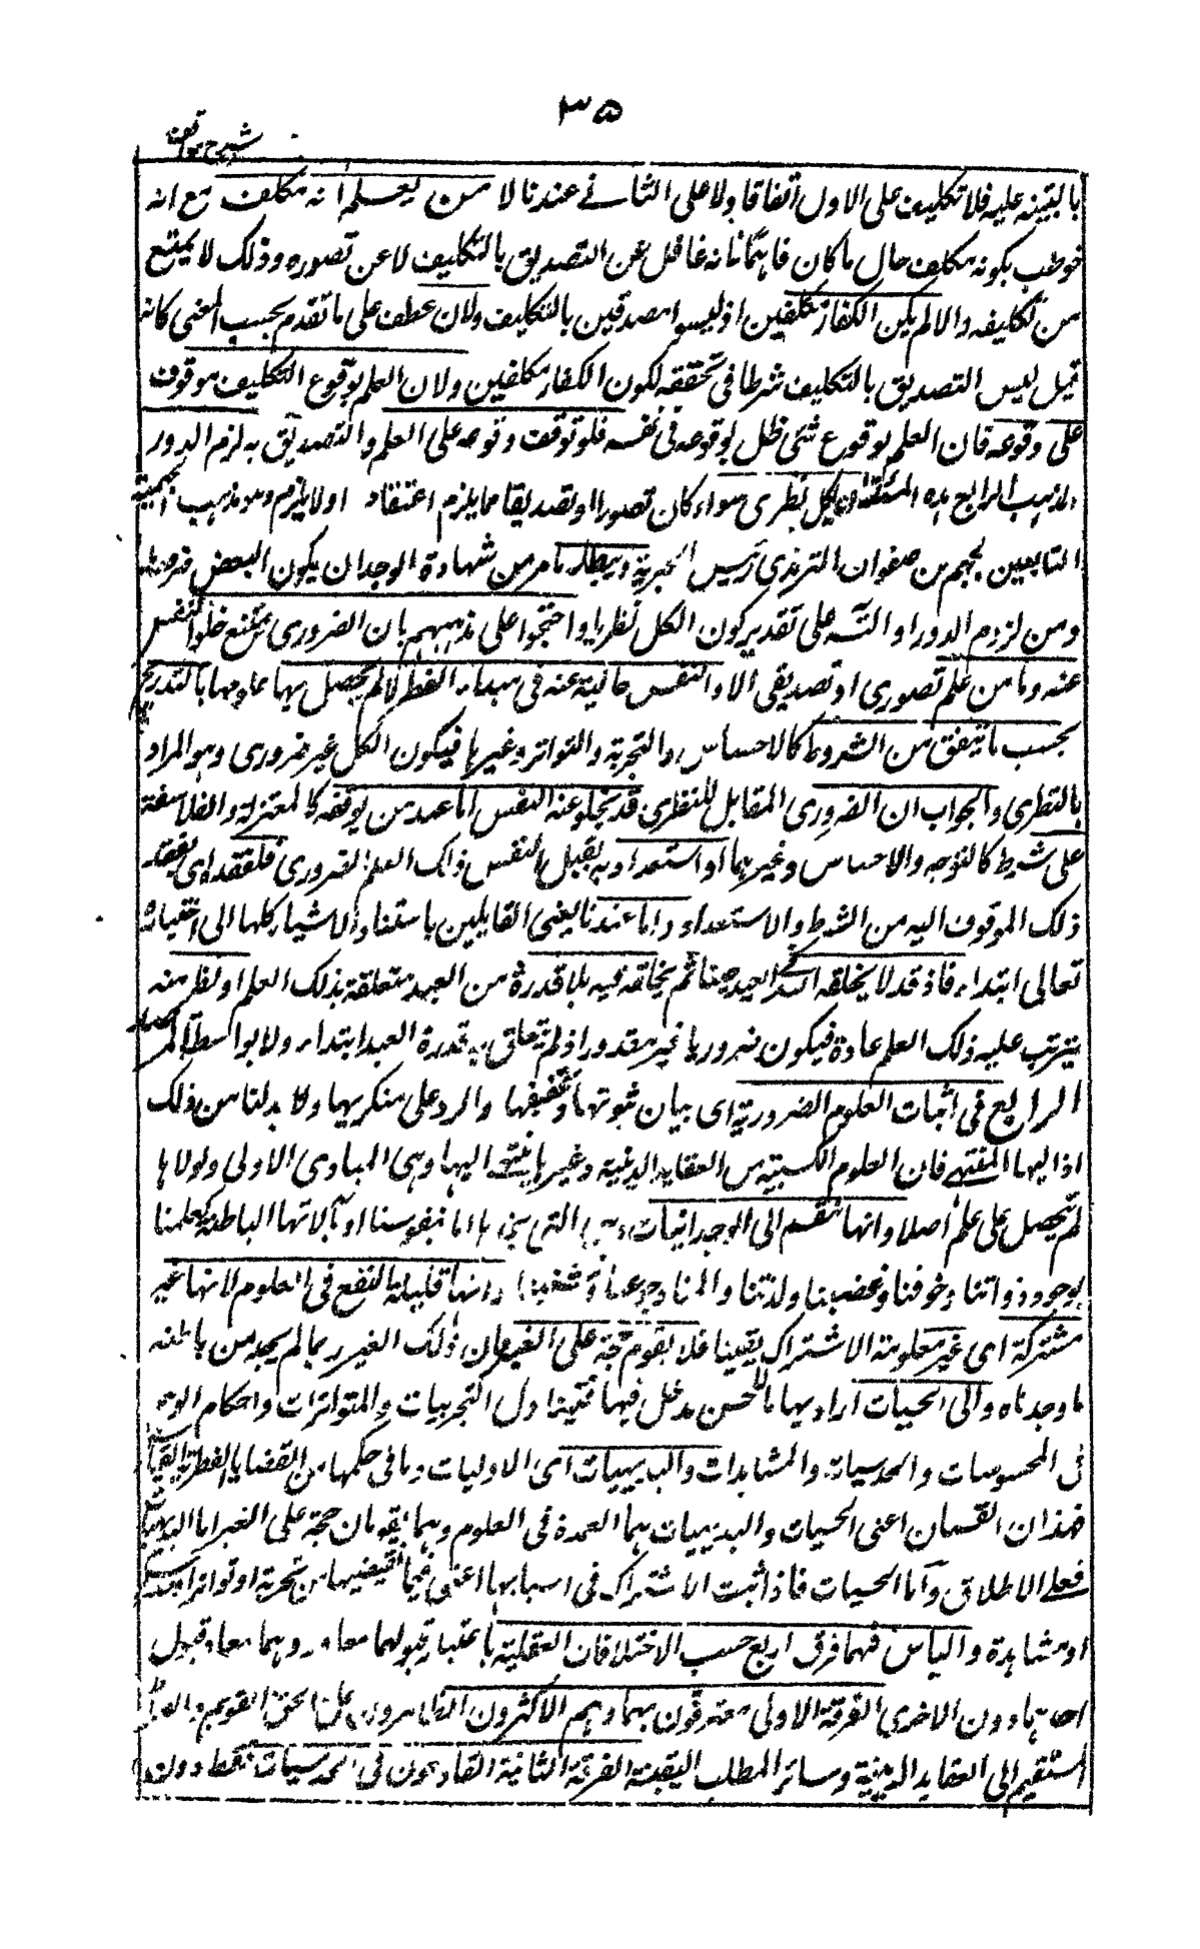 ٣٥
شرح مواقف
بالتنبيه عليه فلا تكليف على الاول اتفاقا ولا على الثاني عندنا لا من لم يعلم انه مكلف مع انه
خوطب بكونه مكلف حال ما كان فاهما فانه غافل عن التصديق بالتكليف لا عن تصوره وذلك لا يمنع
من تكليفه والا لم يكن الكفار مكلفين اذ ليسوا مصدقين بالتكليف ولان عطف على ما تقدم بحسب المعنى كانه
قيل ليس التصديق بالتكليف شرطا في تحققه لكون الكفار مكلفين ولان العلم بوقوع التكليف موقوف
على وقوعه فان العلم بوقوع شئ ظل لوقوعه في نفسه فلو توقف وقوعه على العلم والتصديق به لزم الدور
المذهب الرابع في هذه المسئلة ان الكل نظرى سواء كان تصورا او تصديقا مما يلزم اعتقاده او لا يلزم وهو مذهب الجهمية
التابعين لجهم بن صفوان الترمذى رئيس الجبرية ويبطله ما مر من شهادة الوجدان بكون البعض ضروريا
ومن لزوم الدور او التسـ على تقدير كون الكل نظريا واحتجوا على مذهبهم بان الضرورى يمتنع خلو النفس
عنه وما من علم تصورى او تصديقى الا والنفس خالية عنه في مبداء الفطرة ثم يحصل لها علومها بالتدريج
بحسب ما يتفق من الشروط كالاحساس والتجربة والتواتر وغيرها فيكون الكل غير ضرورى وهو المراد
بالنظرى والجواب ان الضرورى المقابل للنظرى قد يخلو عنه النفس اما عند من يوقفه كالمعتزلة والفلاسفة
على شرط كالتوجه والاحساس وغيرهما او استعداد به يقبل النفس ذلك العلم الضرورى فلفقده اى لفقد
ذلك الموقوف اليه من الشرط والاستعداد واما عندنا يعنى القايلين باستناد الاشياء كلها الى اختياره
تعالى ابتداء فاذ قد لا يخلقه الله تعالى في العبد حينا ثم يخلقه فيه بلا قدرة من العبد متعلقة بذلك العلم او نظر منه
يترتب عليه ذلك العلم عادة فيكون ضروريا غير مقدور اذ لم تتعلق به قدرة العبد ابتداء ولا بواسطة المرصد
الرابع في اثبات العلوم الضرورية اى بيان ثبوتها وتحقيقها والرد على منكريها ولا بد لنا من ذلك
اذ اليها المنتهى فان العلوم الكسبية من العقايد الدينية وغيرها ينتهى اليها وهى المبادى الاولى ولولاها
لم تحصل على علم اصلا وانها تنقسم الى الوجدانيات وهى التى نجدها اما بنفوسنا او بآلاتها الباطنة كعلمنا
بوجود ذواتنا وخوفنا وغضبنا ولذتنا والمنا وجوعنا وشبعنا وانها قليلة النفع في العلوم لانها غير
مشتركة اى غير معلومة الاشتراك يقينا فلا تقوم حجة على الغير فان ذلك الغير ربما لم يجد من باطنه
ما وجدناه والى الحسيات اراد بها ما للحس مدخل فيها فتتناول التجربيات والمتواترات واحكام الوهم
في المحسوسات والحدسيات والمشاهدات والبديهيات اى الاوليات وما في حكمها من القضايا الفطرية القياس
فهذان القسمان اعنى الحسيات والبديهيات هما العمدة في العلوم وهما يقومان حجة على الغير اما البديهيات
فعلى الاطلاق واما الحسيات فاذا ثبت الاشتراك في اسبابها اعنى فيما يقتضيها من تجربة او تواتر او حدس
او مشاهدة والناس فيهما فرق اربع حسب الاختلافان العقلية باعتبار قبولهما معا وردهما معا وقبول
احديهما دون الاخرى الفرقة الاولى معترفون بهما وهم الاكثرون الظاهرون على الحق القويم والصراط
المستقيم الى العقايد الدينية وسائر المطالب اليقينية الفرقة الثانية القادحون في الحسيات فقط دون